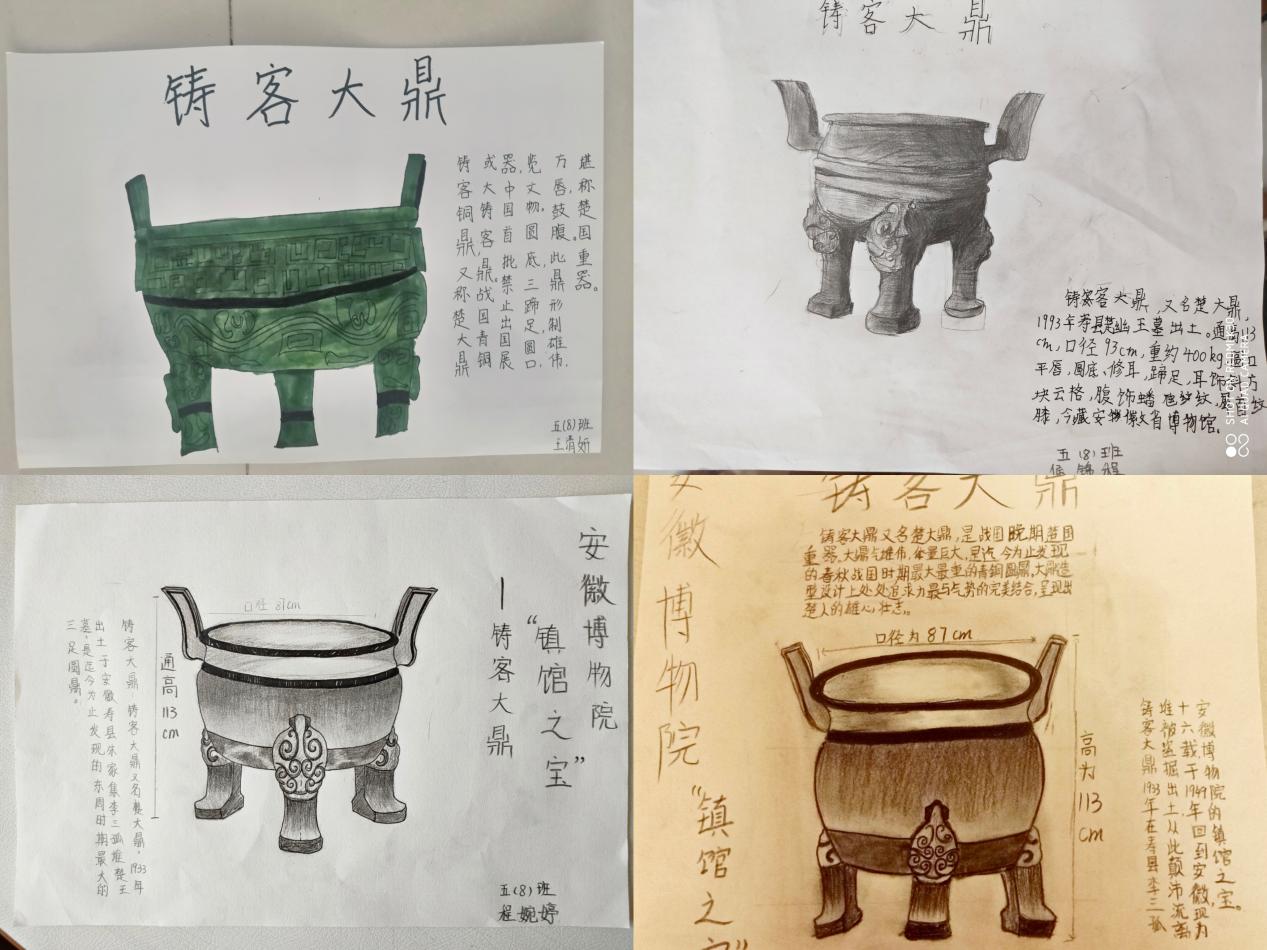 铸客大鼎
铸客铜鼎,又称楚大鼎
或大铸客鼎。战国青铜
器,中国首批禁止出国展
览文物。圆底,三蹄足,圆口,
方唇,鼓腹。此鼎形制雄伟,
堪称楚国重器。
五(8)班
王清妍
铸客大鼎
铸客大鼎,又名楚大鼎,
1993年寿县楚幽王墓出土。通高113
cm,口径93cm,重约400kg,
平唇,圆底,修耳,蹄足,耳饰斜方
块云格,腹饰蟠虺纹,
膝,今藏安徽省博物馆。
五(8)班
SHOT ON REDMI
AI QUAD CAMERA
安徽博物院
“镇馆之宝”
—铸客大鼎
口径87cm
通高113cm
铸客大鼎:铸客大鼎又名楚大鼎,1933年
出土于安徽寿县朱家集李三孤堆楚王
墓。是迄今为止发现的东周时期最大的
三足圆鼎。
五(8)班
程婉婷
铸客大鼎
安徽博物院“镇馆之宝”
铸客大鼎又名楚大鼎,是战国晚期楚国
重器。大鼎气雄伟,体量巨大,是迄今为止发现
的春秋战国时期最大最重的青铜圆鼎,大鼎造
型设计上处处追求力最与气势的完美结合,呈现出
楚人的雄心壮志。
口径为87cm
高为113cm
安徽博物院的镇馆之宝。
十六载,于1949年回到安徽,现为
堆被盗掘出土从此颠沛流离
铸客大鼎1933年在寿县李三孤